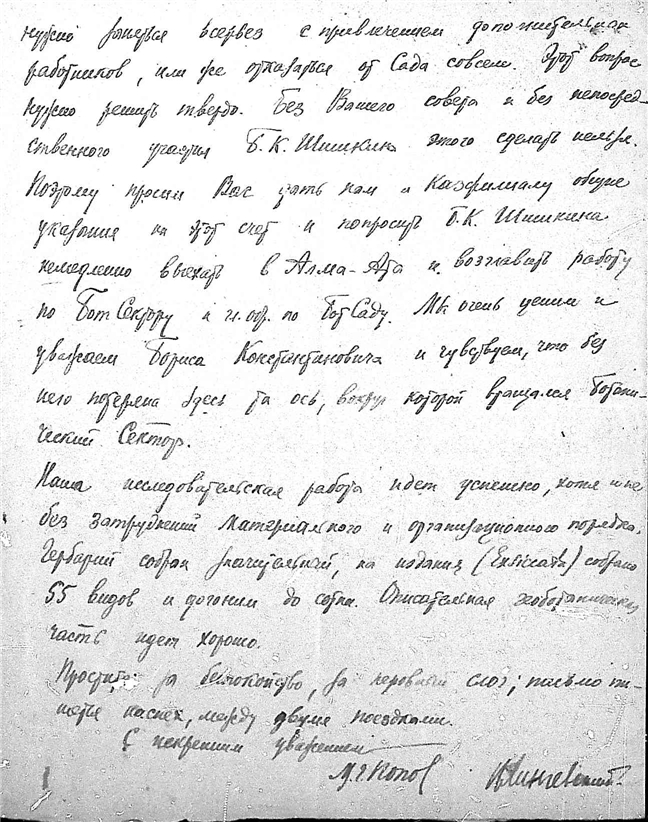 нужно заняться всерьез с привлечением дополнительных
работников, или же отказаться от Сада совсем. Этот вопрос
нужно решить твердо. Без Вашего совета и без непосред-
ственного участия Б.К. Шишкина этого сделать нельзя.
Поэтому просим Вас дать нам и Казфилиалу общие
указания на этот счет и попросить Б.К. Шишкина
немедленно выехать в Алма-Ата и возглавить работу
по БотСектору и гл. обр. по БотСаду. Мы очень ценим и
уважаем Бориса Константиновича и чувствуем, что без
него потеряна здесь та ось, вокруг которой вращался Ботани-
ческий Сектор.
Наша исследовательская работа идет успешно, хотя и не
без затруднений материального и организационного порядка.
Гербарий собран значительный, на издания (Exsiccata) собрано
55 видов и догоним до сотни. Описательная геоботаническая
часть идет хорошо.
Простите за беспокойство, за неровный слог; письмо пи-
шется наспех, между двумя поездками.
С искренним уважением
М. Г. Попов